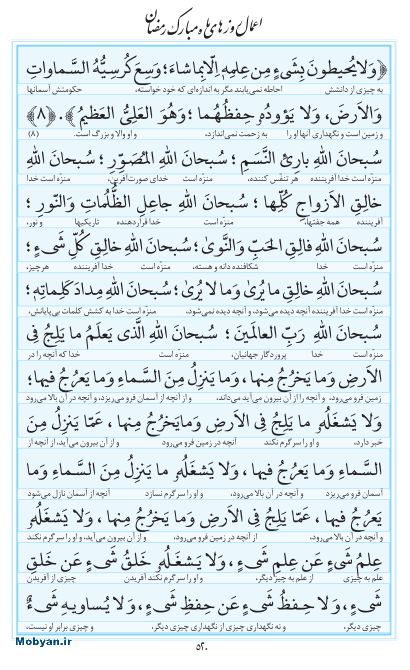 اعمال روزهای ماه مبارک رمضان
﴿وَلَا يُحيطونَ بِشَيءٍ مِن عِلمِهِ إلّا بِماشاءَ؛ وَسِعَ كُرسِيُّهُ السَّماواتِ
به چیزی از دانشش احاطه نمی‌یابند مگر به اندازه‌ای که خود خواسته، حکومتش آسمانها
وَالاَرضَ، وَلا يَؤودُهُ حِفظُهُما؛ وَهُوَ العَلِيُّ العَظيمُ﴾. ﴿٨﴾
و زمین است و نگهداری آنها او را به زحمت نمی‌اندازد، و او والا و بزرگ است. (۸)
سُبحانَ اللهِ بارِئِ النَّسَمِ؛ سُبحانَ اللهِ المُصَوِّرِ؛ سُبحانَ اللهِ
منزّه است خدا آفریننده هر تنفّس کننده، منزّه است خدای صورت‌آفرین، منزّه است خدا
خالِقِ الاَزواجِ كُلِّها؛ سُبحانَ اللهِ جاعِلِ الظُّلُماتِ وَالنّورِ؛
آفریننده همه جفتها، منزّه است خدا قراردهنده تاریکیها و نور،
سُبحانَ اللهِ فالِقِ الحَبِّ وَالنَّوىٰ؛ سُبحانَ اللهِ خالِقِ كُلِّ شَيءٍ؛
منزّه است خدا شکافنده دانه و هسته، منزّه است خدا آفریننده هرچیز،
سُبحانَ اللهِ خالِقِ ما يُرىٰ وَما لا يُرىٰ؛ سُبحانَ اللهِ مِدادَ كَلِماتِهِ؛
منزّه است خدا آفریننده آنچه دیده می‌شود، و آنچه دیده نمی‌شود، منزّه است خدا به کشش کلمات بی‌پایانش،
سُبحانَ اللهِ رَبِّ العالَمينَ؛ سُبحانَ اللهِ الَّذي يَعلَمُ ما يَلِجُ فِي
منزّه است خدا پروردگار جهانیان، منزّه است خدا که آنچه را در
الاَرضِ وَما يَخرُجُ مِنها، وَما يَنزِلُ مِنَ السَّماءِ وَما يَعرُجُ فيها؛
زمین فرو می‌رود، و آنچه را از آن بیرون می‌آید می‌داند، و آنچه از آسمان فرو می‌ریزد، و آنچه در آن بالا می‌رود
وَلا يَشغَلُهُ ما يَلِجُ فِي الاَرضِ وَمايَخرُجُ مِنها، عَمّا يَنزِلُ مِنَ
خبر دارد، و او را سرگرم نکند آنچه در زمین فرو می‌رود و از آن بیرون می‌آید، از آنچه از
السَّماءِ وَما يَعرُجُ فيها، وَلا يَشغَلُهُ ما يَنزِلُ مِنَ السَّماءِ وَما
آسمان فرو می‌ریزد و آنچه در آن بالا می‌رود، و او را سرگرم نسازد آنچه از آسمان نازل می‌شود
يَعرُجُ فيها، عَمّا يَلِجُ فِي الاَرضِ وَما يَخرُجُ مِنها، وَلا يَشغَلُهُ
و آنچه در آن بالا می‌رود، از آنچه در زمین فرو می‌رود و از آن بیرون می‌آید، و او را سرگرم نکند
عِلمُ شَيءٍ عَن عِلمِ شَيءٍ، وَلا يَشغَلُهُ خَلقُ شَيءٍ عَن خَلقِ
علم به چیزی از علم به چیز دیگر، و او را سرگرم نکند آفریدن چیزی از آفریدن
شَيءٍ، وَلا حِفظُ شَيءٍ عَن حِفظِ شَيءٍ، وَلا يُساويهِ شَيءٌ
چیزی دیگر، و نه نگهداری چیزی از نگهداری چیزی دیگر، و چیزی برابر او نیست،
Mobyan.ir
۵۲۰